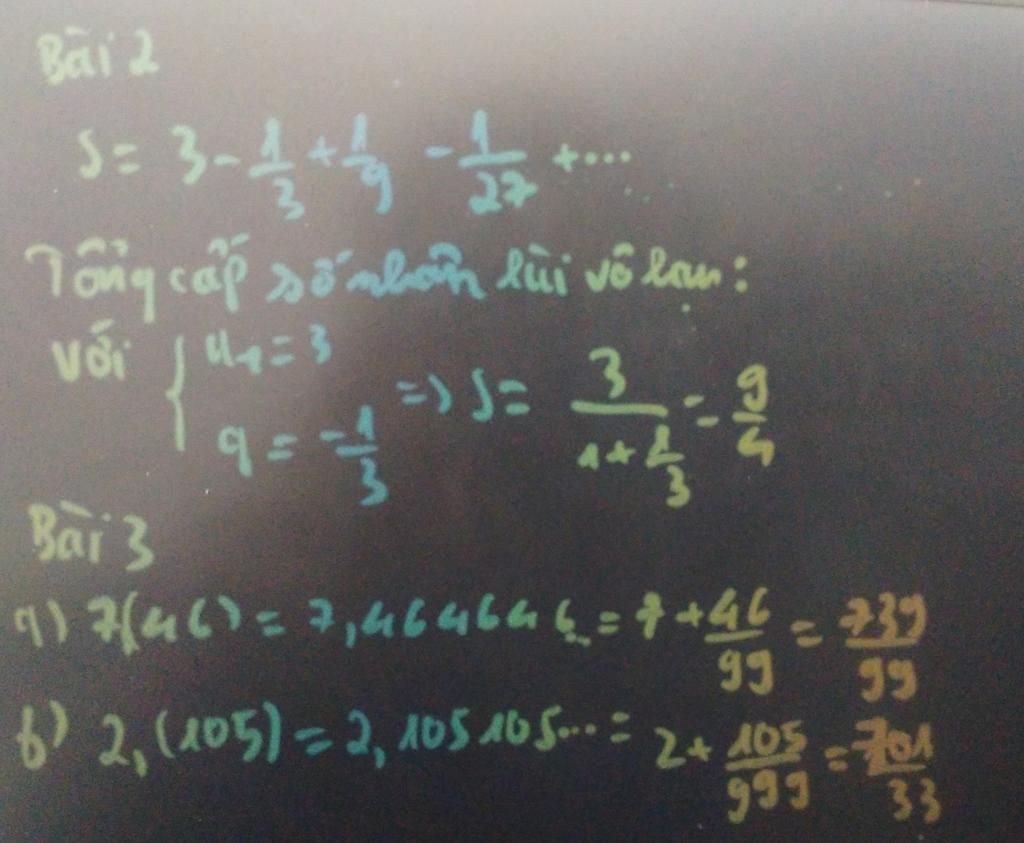 Bài 2
S = 3 - 1/3 + 1/9 - 1/27 + ...
Tổng cấp số nhân lùi vô hạn:
với { u1 = 3
q = -1/3 => S = 3/(1 + 1/3) = 9/4
Bài 3
a) 7(46) = 7,464646... = 7 + 46/99 = 739/99
b) 2,(105) = 2,105105... = 2 + 105/999 = 701/33